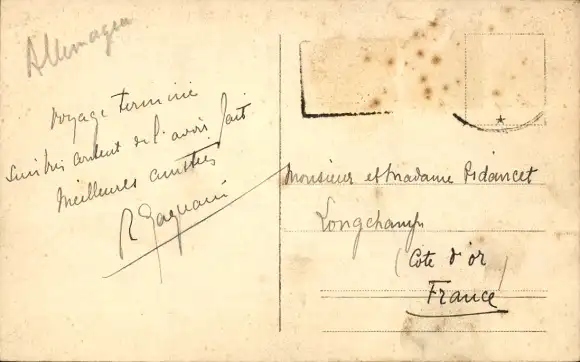 Allemagne
Voyage terminé
suis très content de l'avoir fait
Meilleures amitiés
R
Monsieur et Madame Pidancet
Longchamp
(Cote d'or)
France